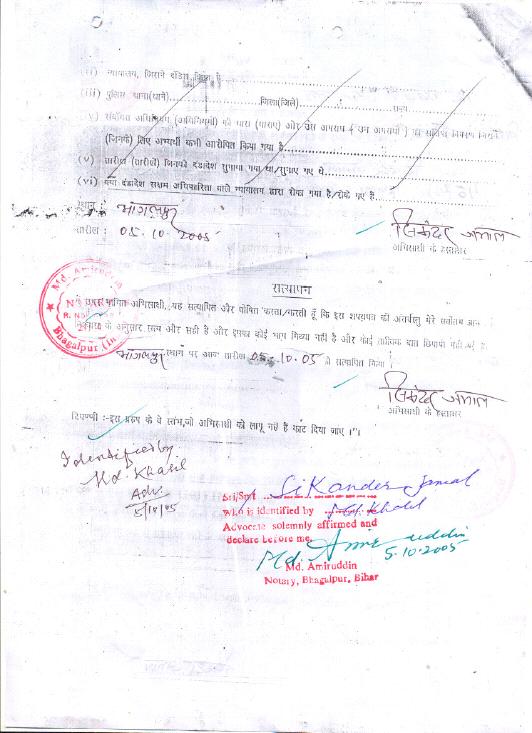 (ii) न्यायालय, जिसने दंडित किया है
(iii) पुलिस थाना(थाने) जिला(जिले) राज्य
संबंधित अधिनियम (अधिनियमों) की धारा (धाराएं) और उस अपराध (उन अपराधों) का संक्षिप्त विवरण जिसके
(जिनके) लिए अभ्यर्थी को आरोपित किया गया है
(v) तारीख (तारीखें) जिनको दंडादेश सुनाया गया था/सुनाए गए थे
(vi) क्या दंडादेश सक्षम अधिकारिता वाले न्यायालय द्वारा रोका गया है/रोके गए हैं
स्थान : भागलपुर
तारीख : 05.10.2005
अभिसाक्षी के हस्ताक्षर
सत्यापन
अभिसाक्षी, यह सत्यापित और घोषित करता/करती हूँ कि इस शपथपत्र की अंतर्वस्तु मेरे सर्वोत्तम ज्ञान
के अनुसार सत्य और सही है और इसका कोई भाग मिथ्या नहीं है और कोई तात्विक बात छिपायी नहीं गई है
भागलपुर स्थान पर आज तारीख 05.10.05 को सत्यापित किया
अभिसाक्षी के हस्ताक्षर
टिप्पणी :-इस प्ररूप के वे स्तंभ,जो अभिसाक्षी को लागू नहीं हैं काट दिया जाए ।"।
Md. Amiruddin
Bhagalpur
Identified by
Md. Khalil
Adv.
5/10/05
Sri/Smt Sikander Jamal
who is identified by Md. Khalil
Advocate solemnly affirmed and
declare before me.
Md. Amiruddin
5.10.2005
Md. Amiruddin
Notary, Bhagalpur, Bihar